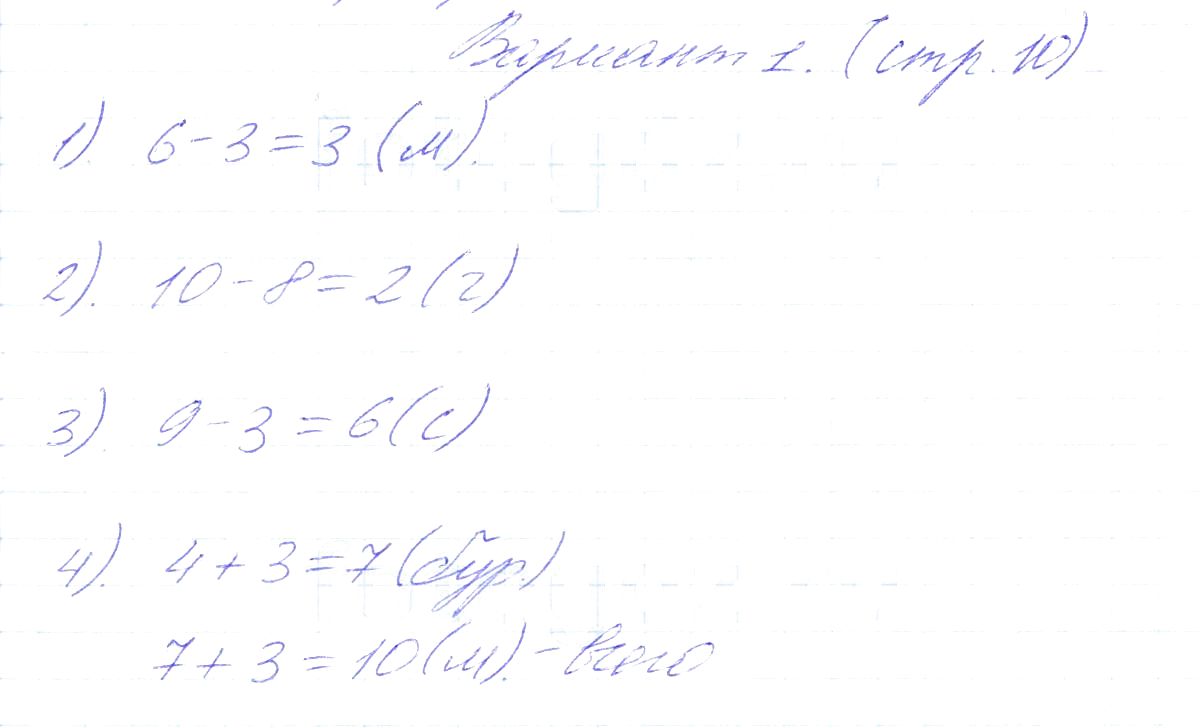 Вариант 1. (стр. 10)
1) 6 - 3 = 3 (м).
2). 10 - 8 = 2 (г)
3) 9 - 3 = 6 (с)
4). 4 + 3 = 7 (бур.)
7 + 3 = 10 (м). - всего